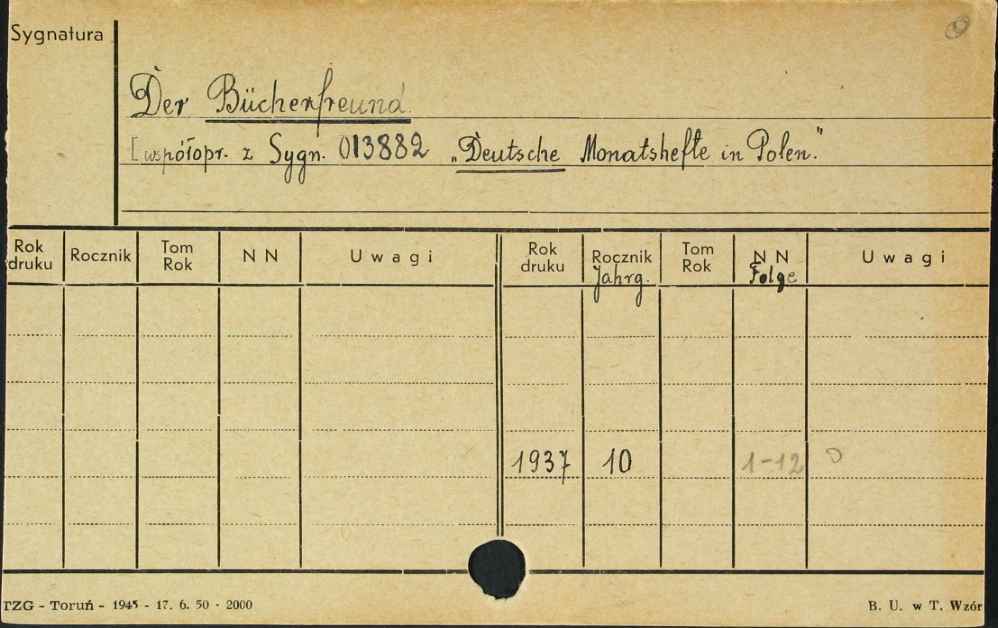 Sygnatura
Der Bücherfreund
[współopr. z Sygn. 013882 „Deutsche Monatshefte in Polen."
Rok druku Rocznik Tom Rok N N Uwagi Rok druku Rocznik Jahrg. Tom Rok N N Folge Uwagi
1937 10 1-12
TZG - Toruń - 1945 - 17. 6. 50 - 2000 B. U. w T. Wzór